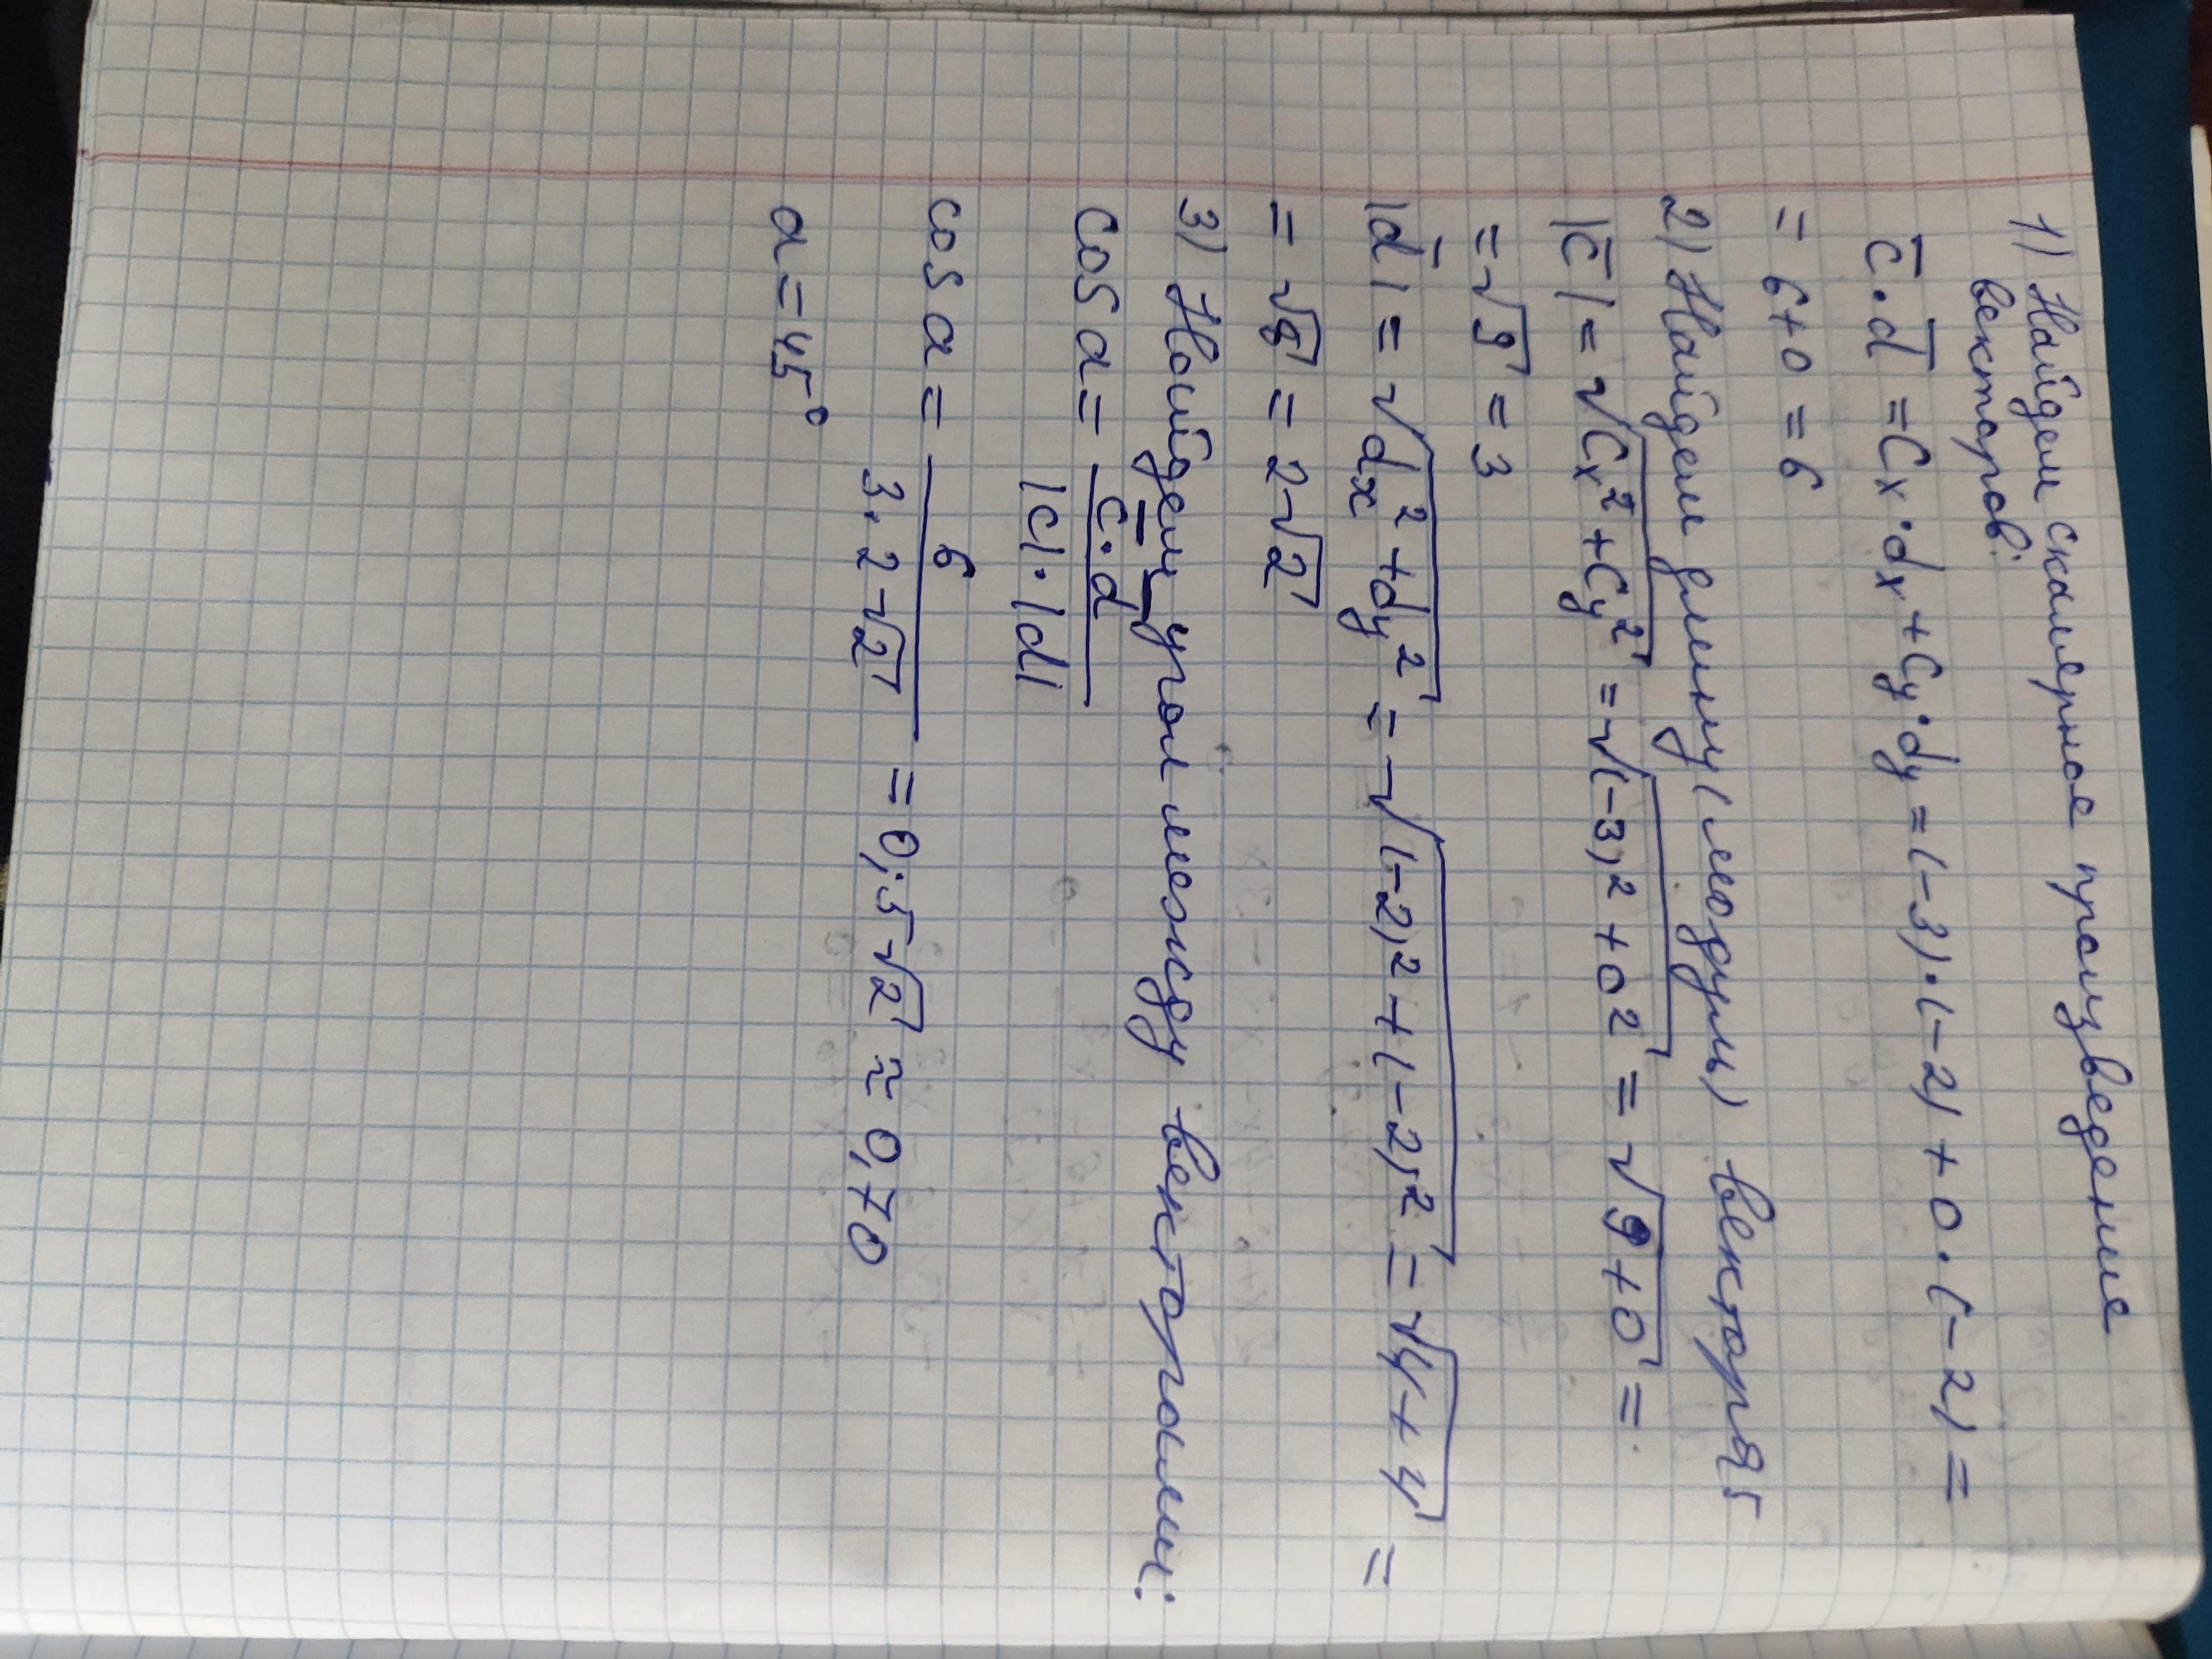 1) Найдем скалярное произведение
векторов:
c̅·d̅ = Cx·dx + Cy·dy = (-3)·(-2) + 0·(-2) =
= 6+0 = 6
2) Найдем длину (модуль) вектора
|c̅| = √Cx² + Cy² = √(-3)² + 0² = √9+0 =
= √9 = 3
|d̅| = √dx² + dy² = √(-2)² + (-2)² = √4+4 =
= √8 = 2√2
3) Найдем угол между векторами:
cos α = c̅·d̅ / |c|·|d|
cos α = 6 / 3·2√2 = 0,5√2 ≈ 0,70
α = 45°